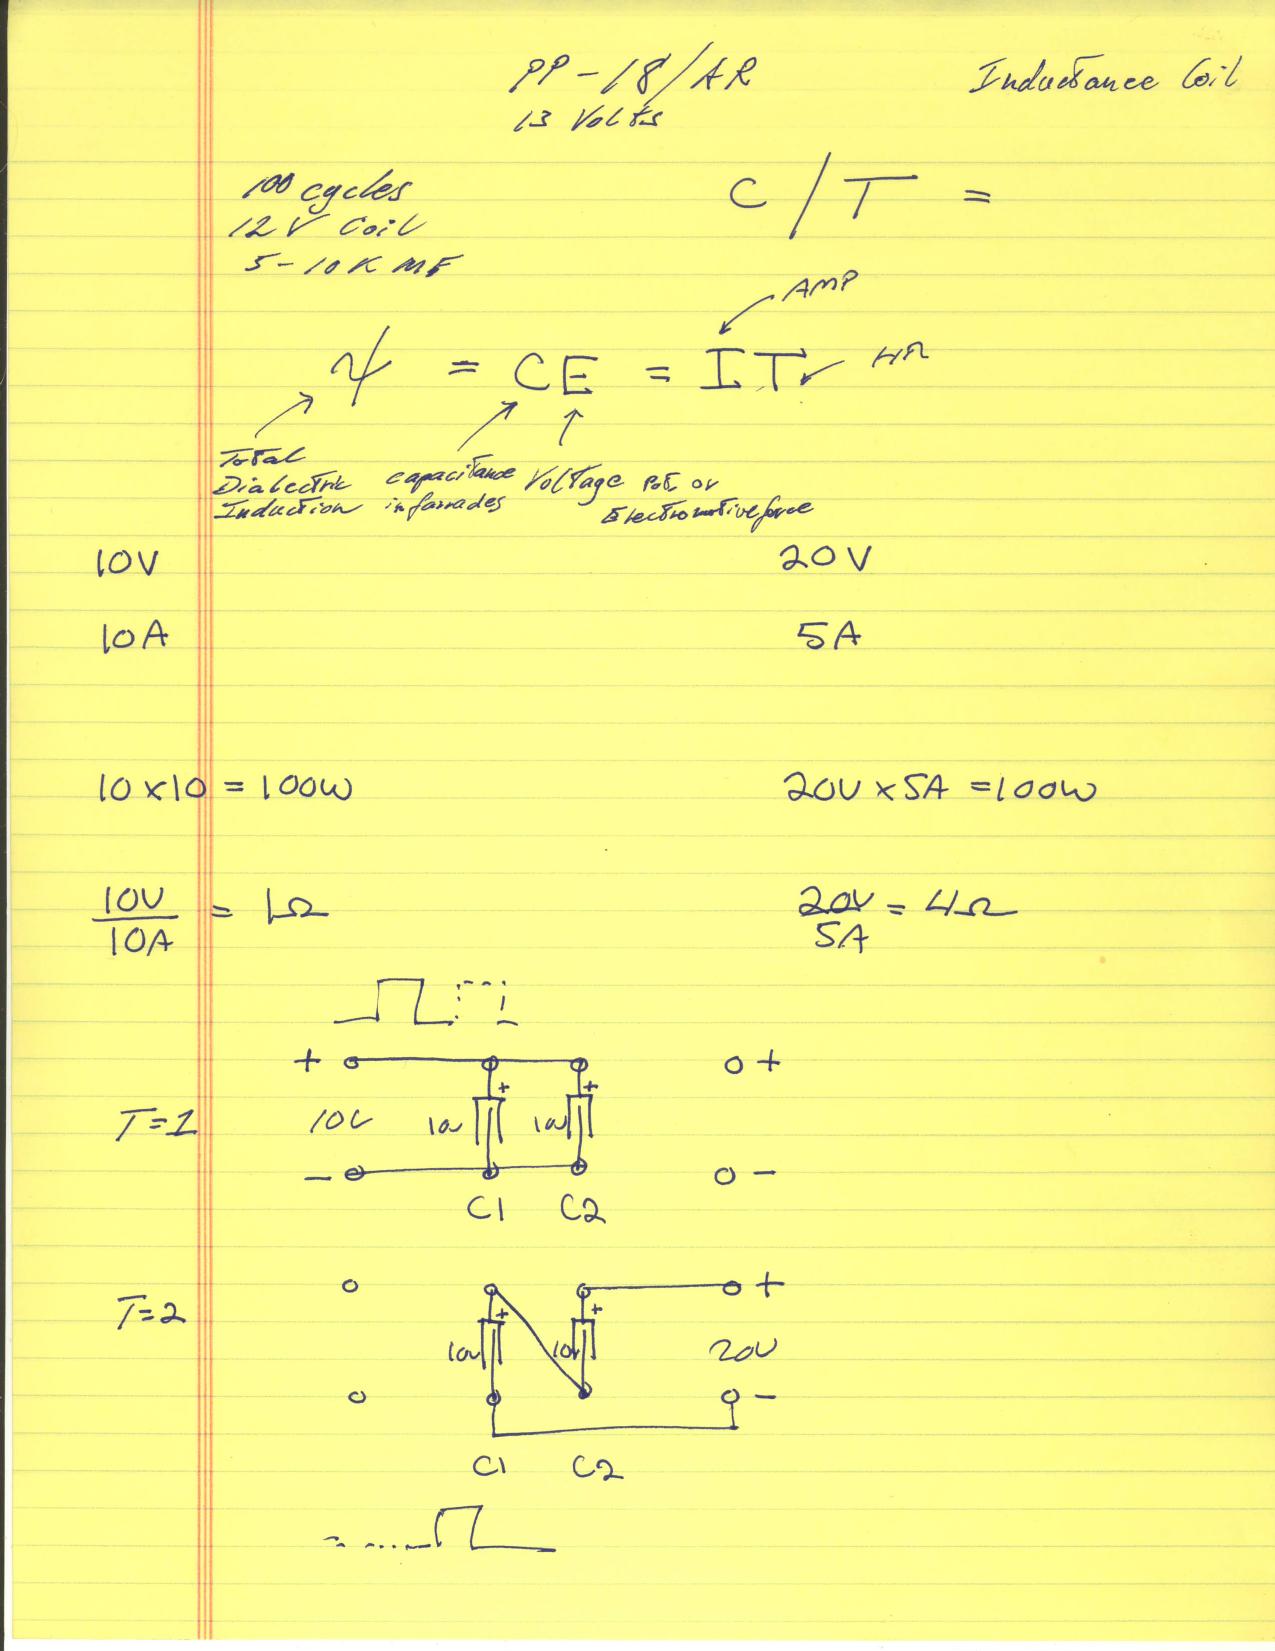 PP-18/AR
Inductance Coil
13 Volts
100 cycles
12V Coil
5-10K MF
C/T =
AMP
ψ = CE = IT
HR
Total
Dialectric
Induction
capacitance
in farrades
Voltage Pot. or
Electromotive force
10V
20V
10A
5A
10 x 10 = 100W
20V x 5A = 100W
10V
10A
= 1Ω
20V
5A
= 4Ω
+
T=1
10V
10V
10V
+
+
-
C1
C2
+
-
T=2
10V
10V
+
+
+
20V
-
C1
C2